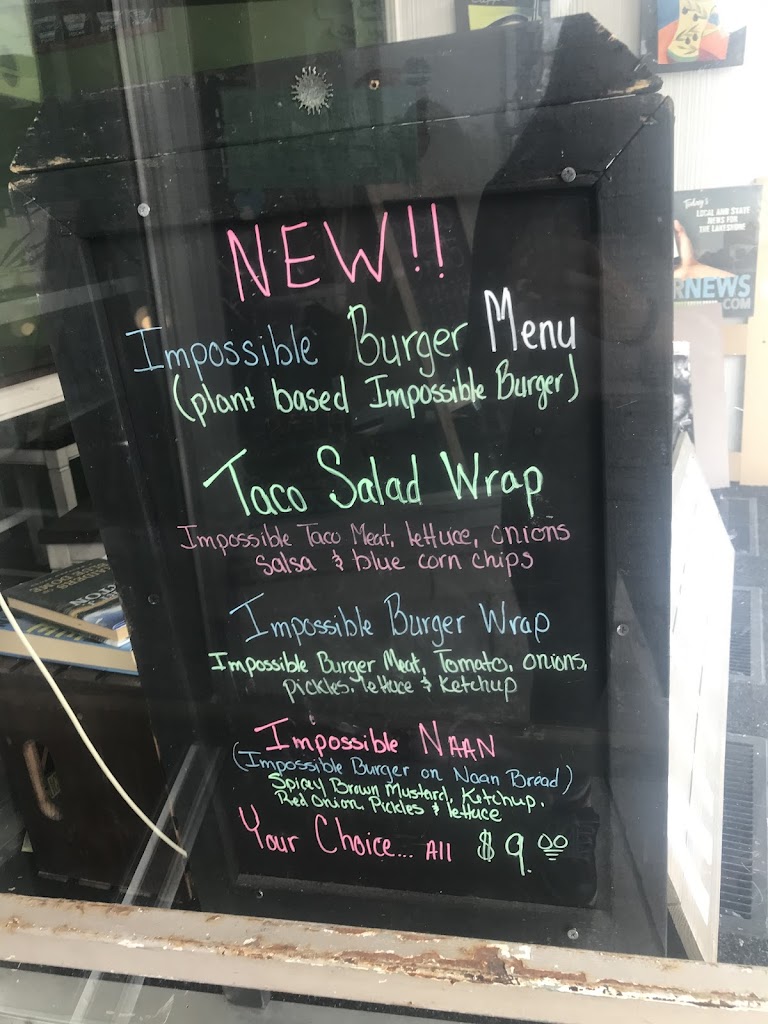 NEW!!
Impossible Burger Menu
(plant based Impossible Burger)
Taco Salad Wrap
Impossible Taco Meat, lettuce, onions
salsa & blue corn chips
Impossible Burger Wrap
Impossible Burger Meat, Tomato, onions,
pickles, lettuce & Ketchup
Impossible NAAN
(Impossible Burger on Naan Bread)
Spicey Brown Mustard, Ketchup,
Red Onion, Pickles & lettuce
Your Choice... All $9.00
Today's
LOCAL AND STATE
NEWS FOR
THE LAKESHORE
RNEWS
.COM